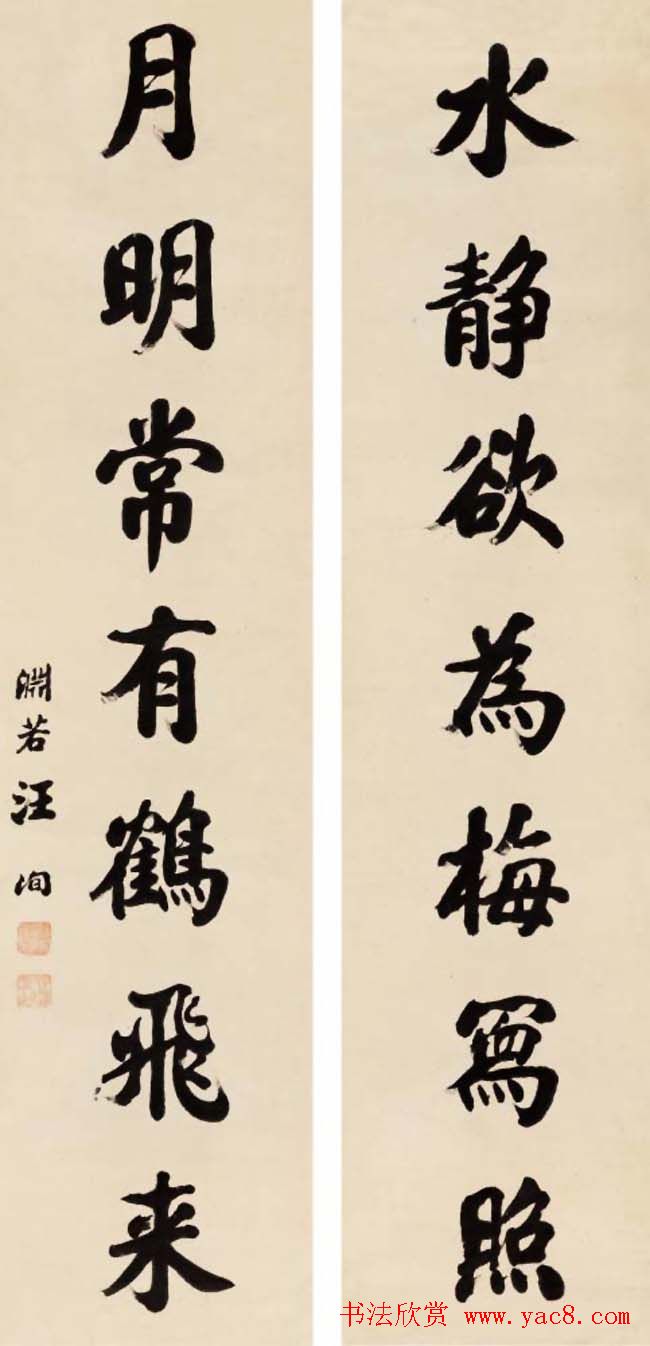 水静欲為梅寫照
月明常有鶴飛来
淵若汪洵
书法欣赏 www.yac8.com